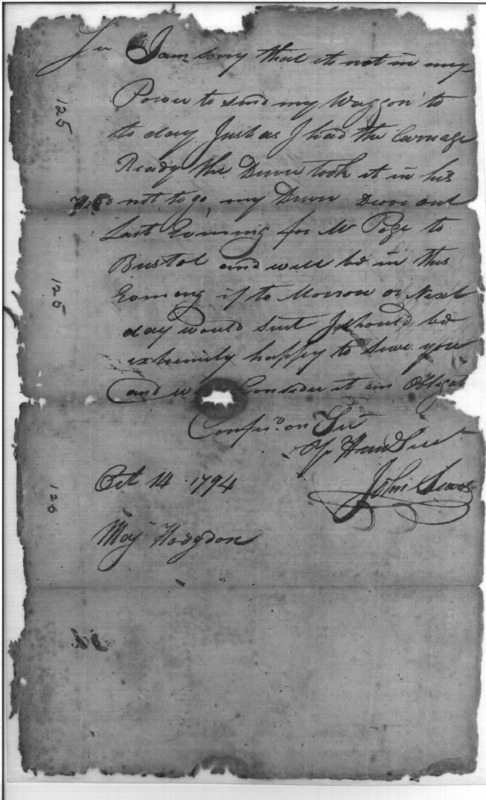 Sir I am sorry that its not in my
Power to send my Waggon to
to day Just as I had the Carriage
Ready the Driver took it in his
not to go my Driver Drove out
Last Evening for Mr Page to
Bristol and will be in this
Evening if to Morrow or Next
day would Suit I should be
extremily happy to Serve you
and Consider it an Obligat
Confer.d on Sir
Yr Hum.l Servt
John
Oct 14 1794
Maj Hodgdon
125
125
125